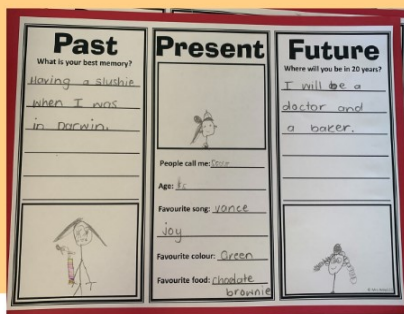 Past
What is your best memory?
Having a slushie
when I was
in Darwin.
Present
People call me:
Age:
Favourite song: vance
joy
Favourite colour: Green
Favourite food: choclate
brownie
Future
Where will you be in 20 years?
I will be a
doctor and
a baker.